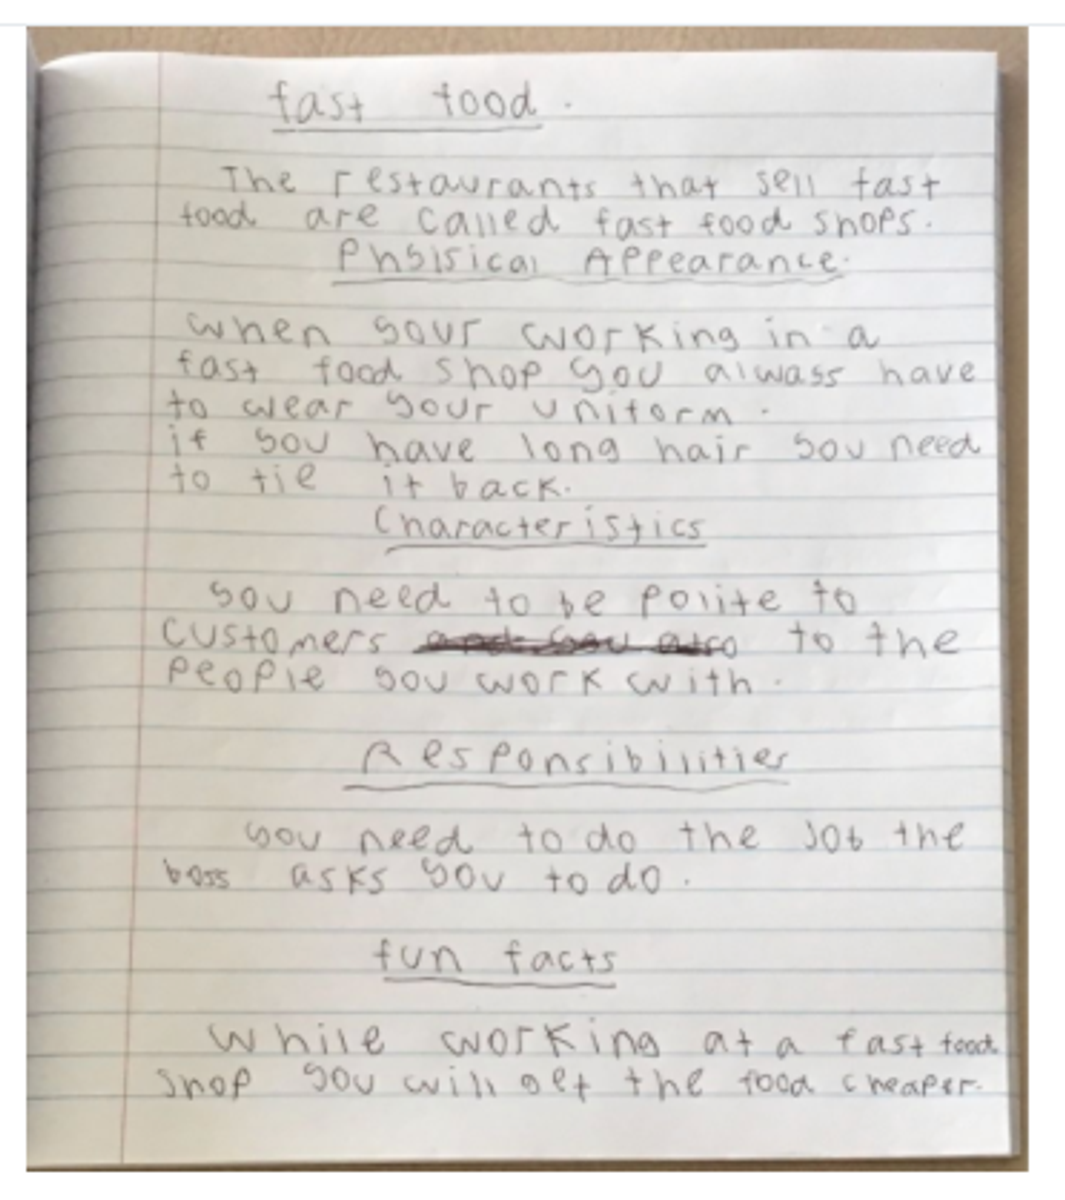 fast food.
The restaurants that sell fast
food are called fast food shops.
Phsisical Appearance.
when your working in a
fast food shop you always have
to wear your uniform.
if you have long hair you need
to tie it back.
Characteristics
you need to be polite to
customers to the
people you work with.
Responsibilities
you need to do the job the
boss asks you to do.
fun facts
While working at a fast food
shop you will get the food cheaper.